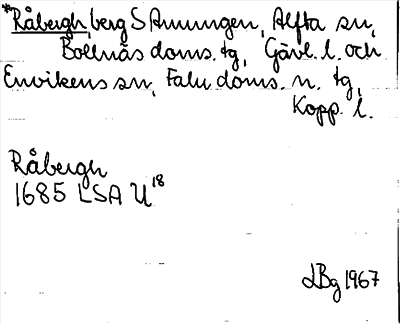 *Råbergh, berg S Amungen, Alfta sn,
Bollnäs doms. tg, Gävl. l. och
Envikens sn, Falu doms. n. tg,
Kopp. l.
Råbergh
1685 LSA U18
LBg 1967